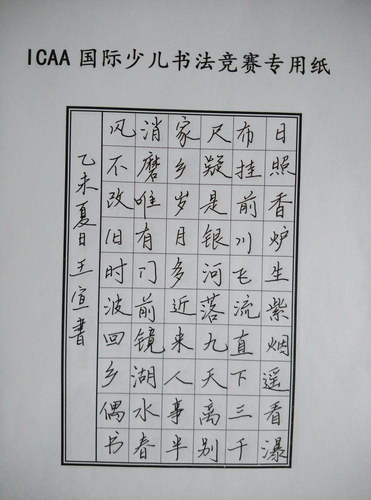 ICAA 国际少儿书法竞赛专用纸
日照香炉生紫烟遥看瀑
布挂前川飞流直下三千
尺疑是银河落九天离别
家乡岁月多近来人事半
消磨唯有门前镜湖水春
风不改旧时波回乡偶书
乙未夏日王宣書